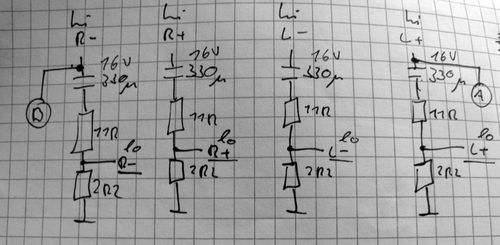 Hi
R-
16V
330µ
D
11Ω
lo
R-
2R2
Hi
R+
16V
330µ
11Ω
lo
R+
2R2
Hi
L-
16V
330µ
11Ω
lo
L-
2R2
Hi
L+
16V
330µ
A
11Ω
lo
L+
2R2